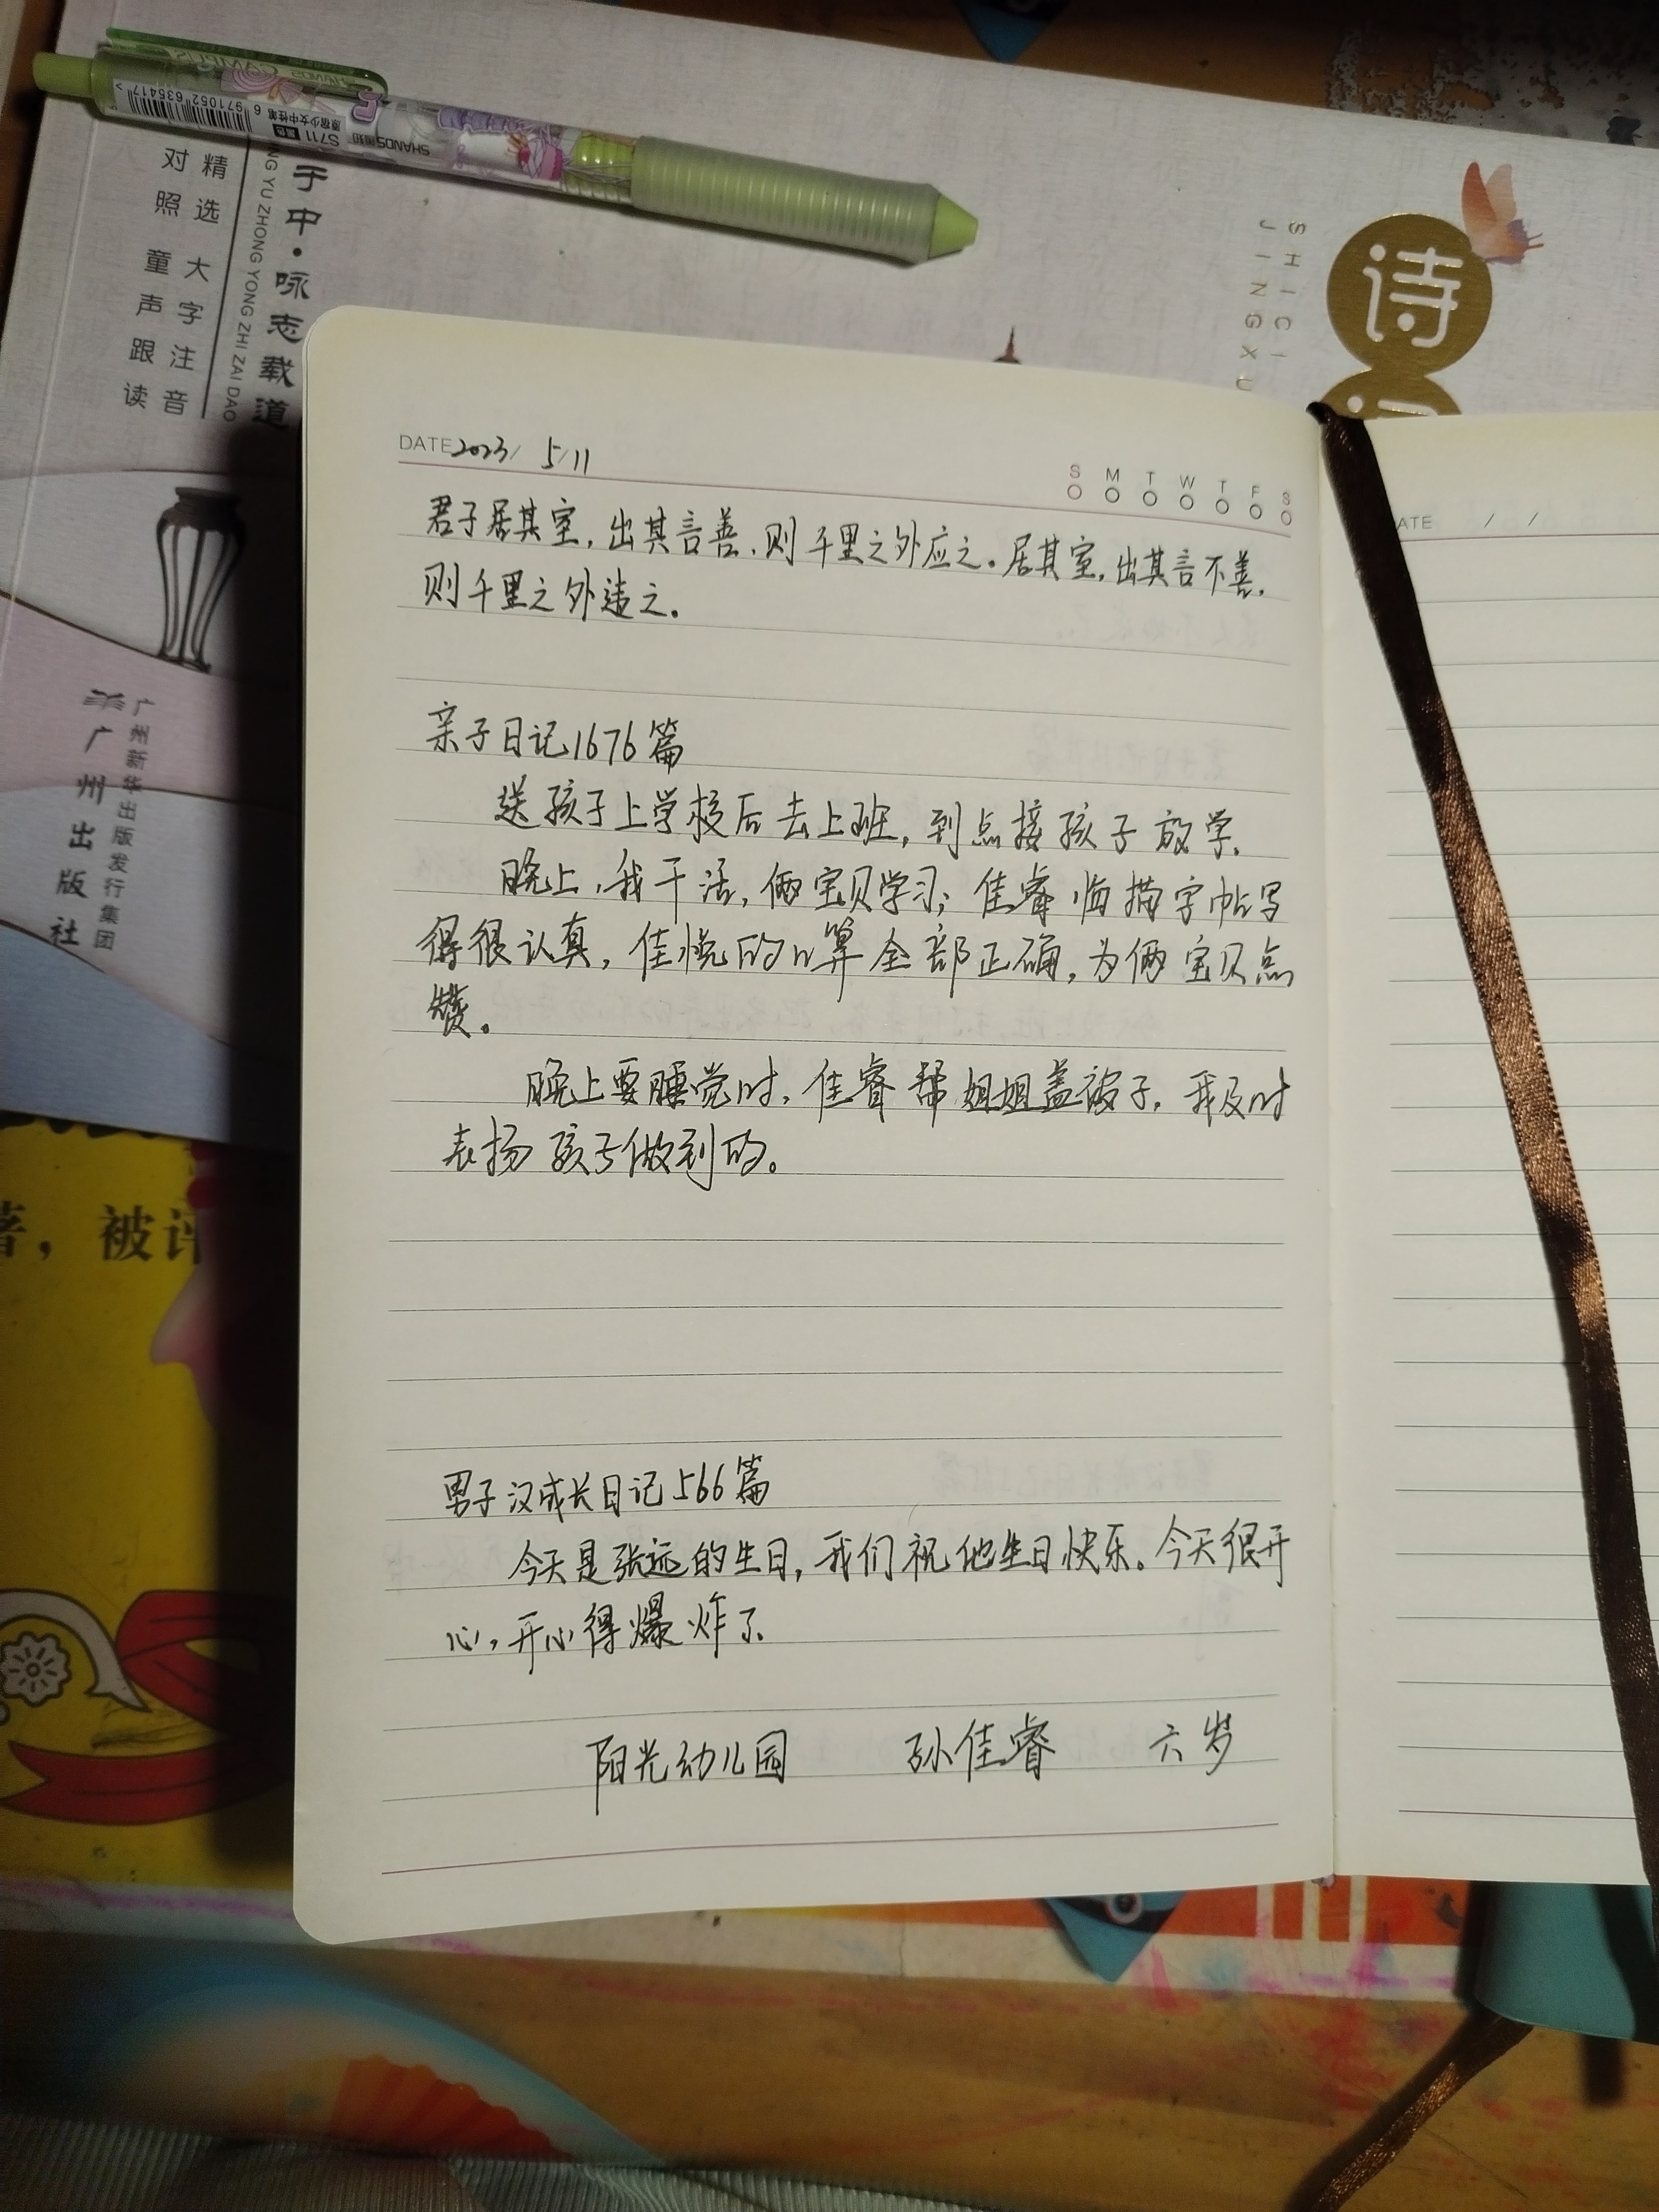 SHANDS CAMPUS
6 971052 635417
S711
SHANDS
精选 大字注音
对照 童声跟读
于中·咏志载道
NG YU ZHONG YONG ZHI ZAI DAO
诗
SHICI
JINGXU
广州新华出版发行集团
广州出版社
著，被评
DATE 2023/ 5/11
S M T W T F S
君子居其室，出其言善，则千里之外应之。居其室，出其言不善，
则千里之外违之。
亲子日记1676篇
送孩子上学校后去上班，到点接孩子放学。
晚上，我干活，俩宝贝学习；佳睿临摹字帖写
得很认真，佳悦的口算全部正确，为俩宝贝点
赞。
晚上要睡觉时，佳睿帮姐姐盖被子，我及时
表扬孩子做到的。
男子汉成长日记566篇
今天是张远的生日，我们祝他生日快乐。今天很开
心，开心得爆炸了。
阳光幼儿园 孙佳睿 六岁
ATE / /